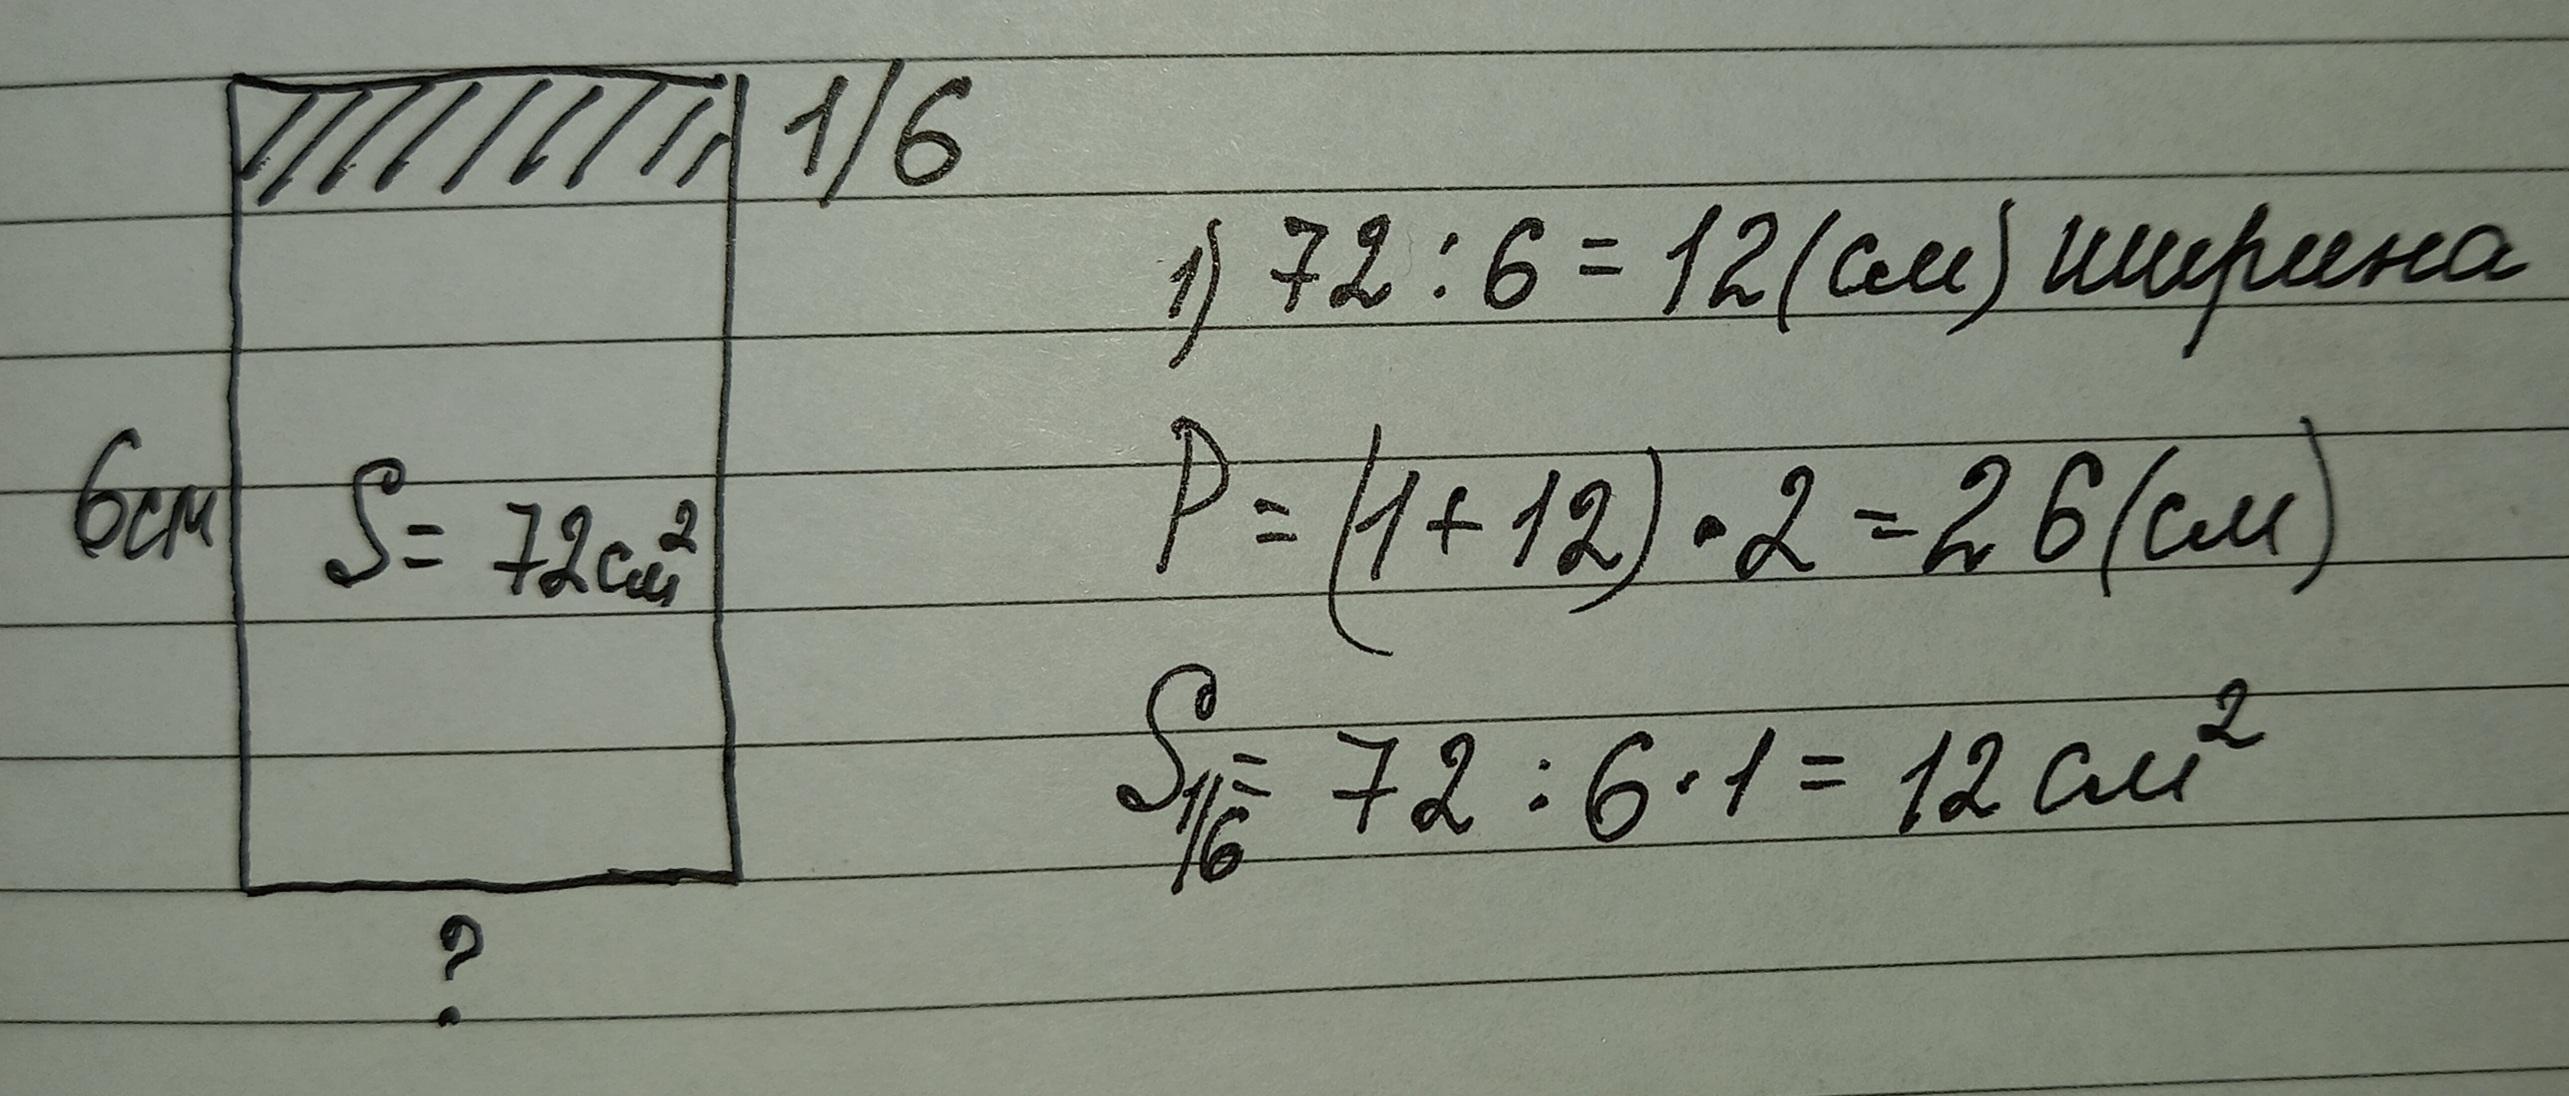 1/6
6см
S = 72см²
?
1) 72 : 6 = 12 (см) ширина
P = (1 + 12) · 2 = 26 (см)
S1/6 = 72 : 6 · 1 = 12 см²